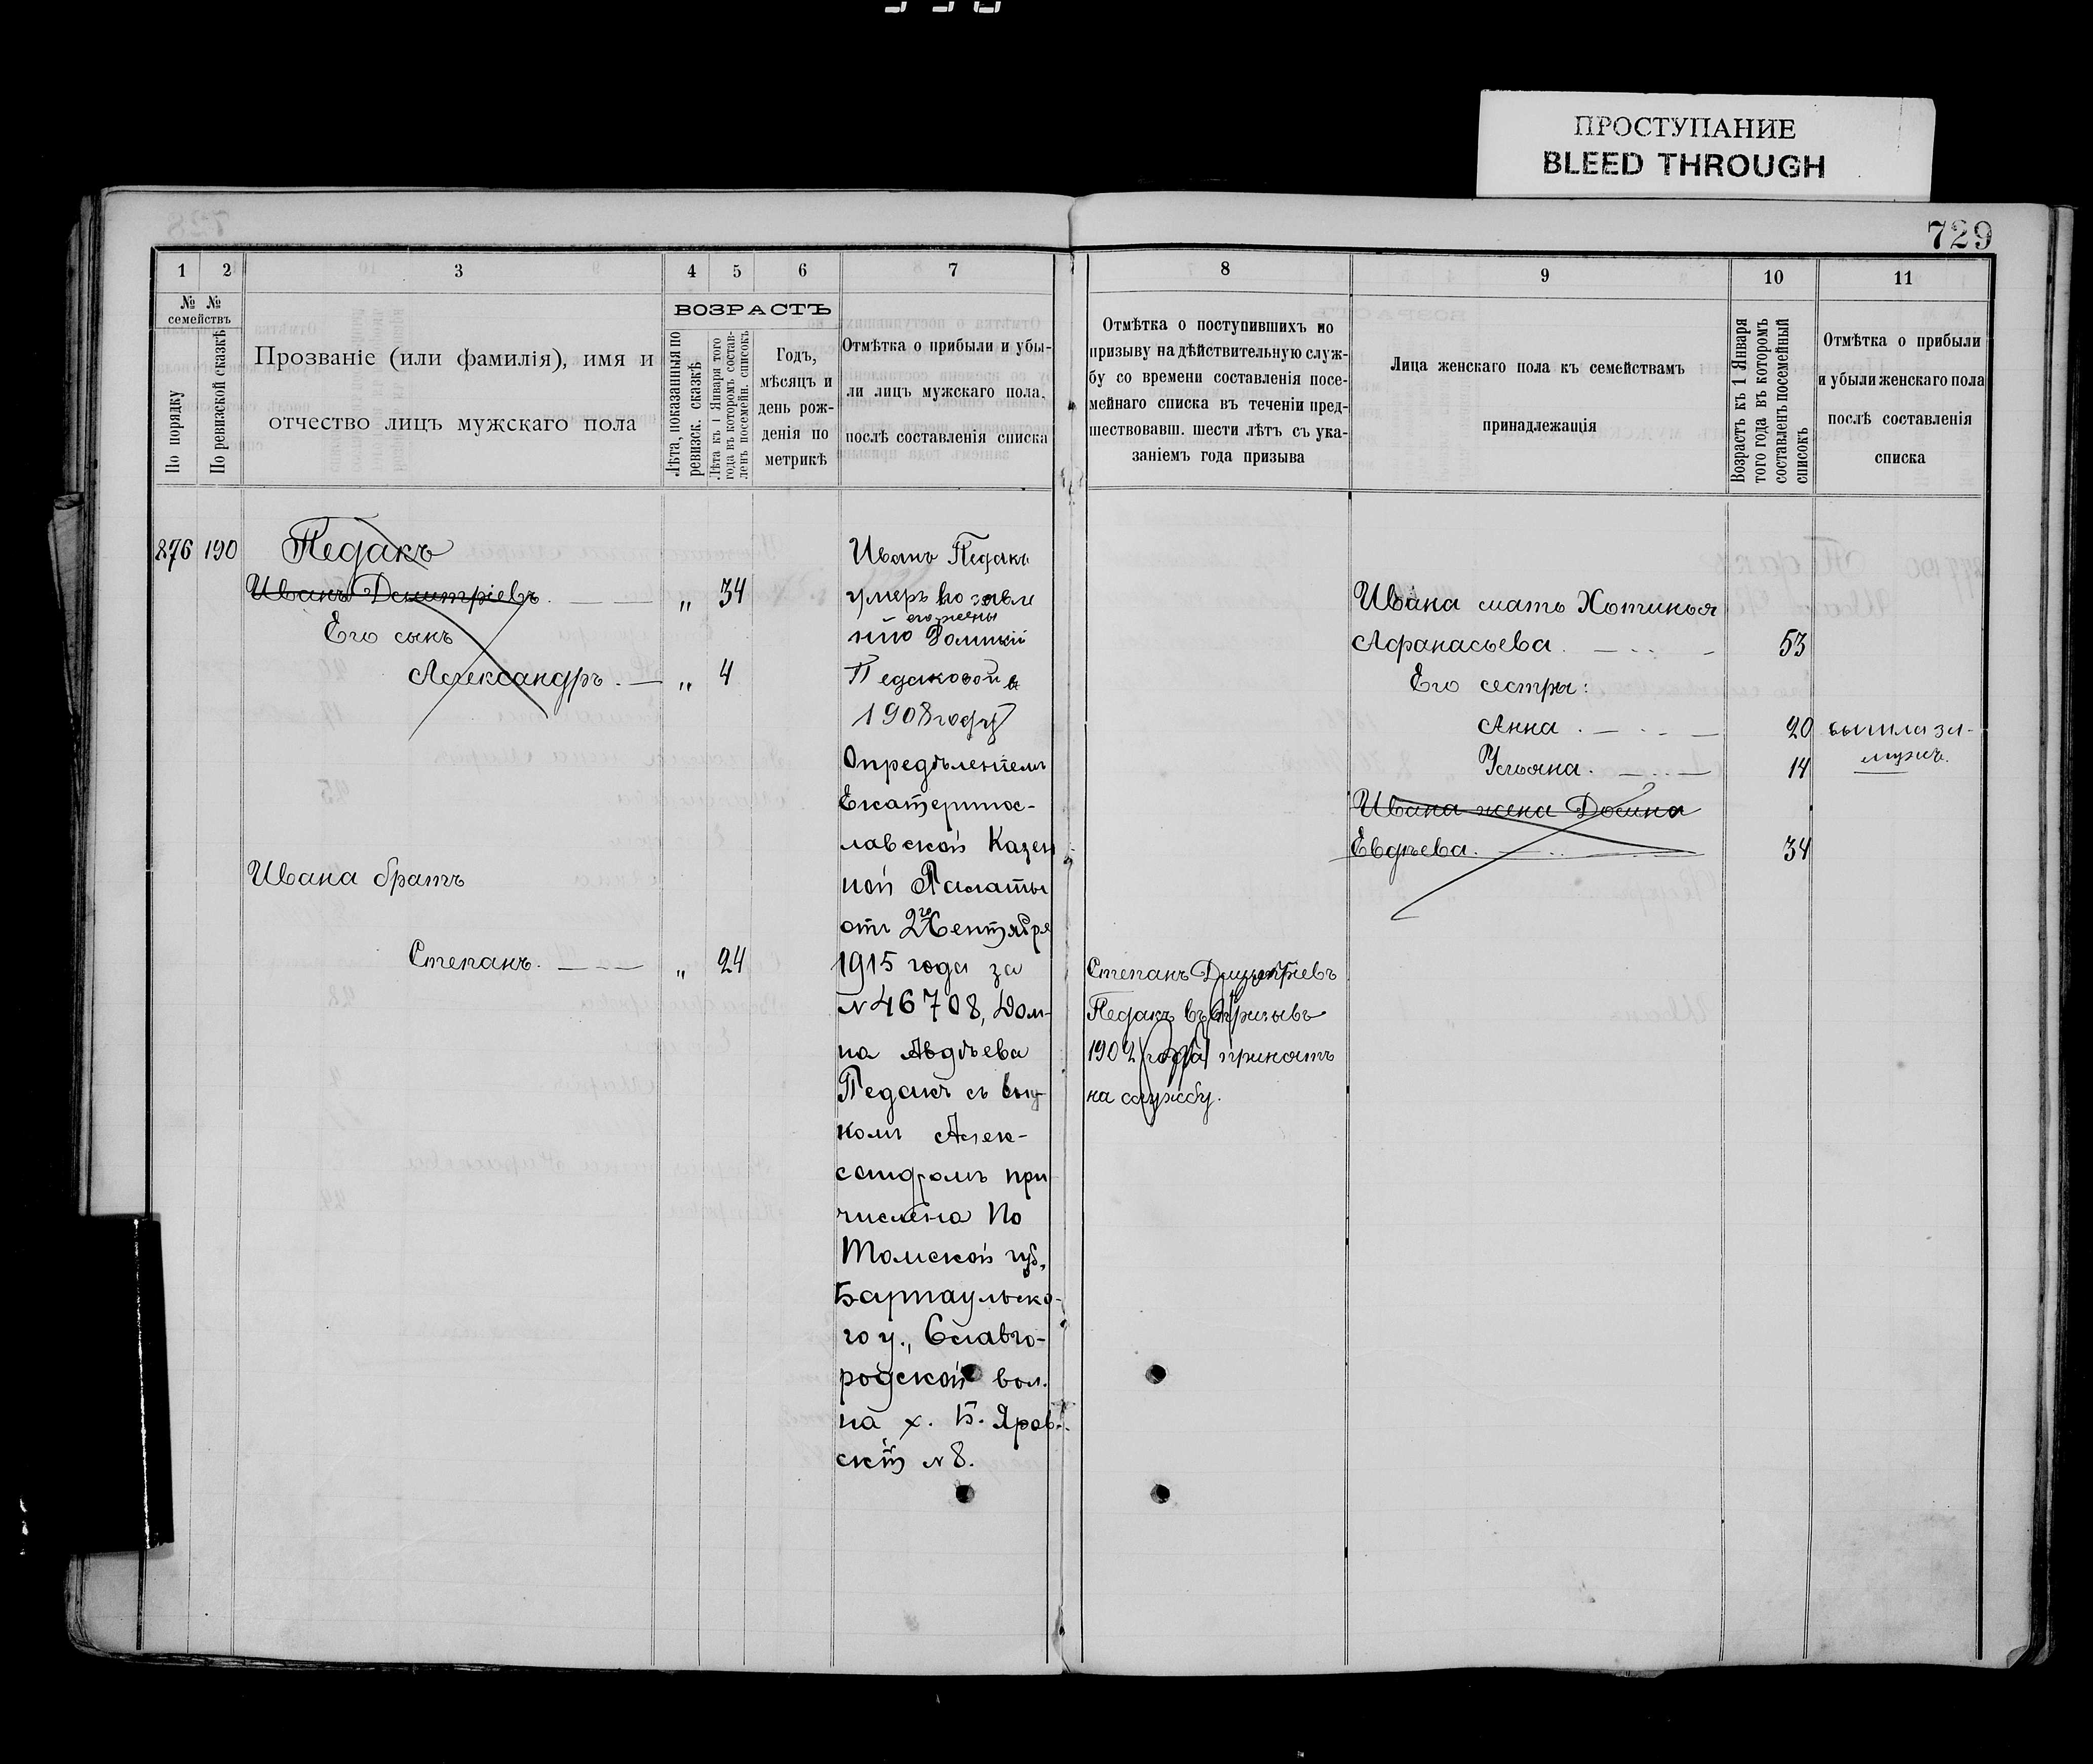 ПРОСТУПАНИЕ
BLEED THROUGH
729
1
2
3
4
5
6
7
8
9
10
11
№ №
семействъ
По порядку
По ревизской сказкѣ
Прозваніе (или фамилія), имя и
отчество лицъ мужскаго пола
ВОЗРАСТЪ
Лѣта, показанныя по
ревизск. сказкѣ
Лѣта къ 1 Января того
года въ которомъ состав-
ленъ посемейн. списокъ
Годъ,
мѣсяцъ и
день рож-
денія по
метрикѣ
Отмѣтка о прибыли и убы-
ли лицъ мужскаго пола,
послѣ составленія списка
Отмѣтка о поступившихъ по
призыву на дѣйствительную служ-
бу со времени составленія посе-
мейнаго списка въ теченіи пред-
шествовавш. шести лѣтъ съ ука-
заніемъ года призыва
Лица женскаго пола къ семействамъ
принадлежащія
Возрастъ къ 1 Января
того года въ которомъ
составленъ посемейный
списокъ
Отмѣтка о прибыли
и убыли женскаго пола
послѣ составленія
списка
876 190 Педакъ
Иванъ Дмитріевъ „ 34
Его сынъ
Александръ „ 4
Ивана братъ
Степанъ „ 24
Иванъ Педакъ
умеръ по заявле
его жены
нію
Педаковой в
1908 году
Опредѣленіемъ
Екатеринос-
лавской Казен
ной Палаты
отъ 2го Сентября
1915 года за
№ 46708, Дом-
на Авдѣева
Педакъ съ вну
комъ Алек-
сандромъ при
числена по
Томской губ.
Барнаульско-
го у., Славго-
родской вол.
на х. Б. Яров-
скій № 8.
Степанъ Дмитріевъ
Педакъ въ призывъ
1902 года принятъ
на службу.
Ивана мать Хотинья
Афанасьева 53
Его сестры:
Анна 20 вышла за-
мужъ.
Ульяна 14
Ивана жена Домна
Евдѣева 34